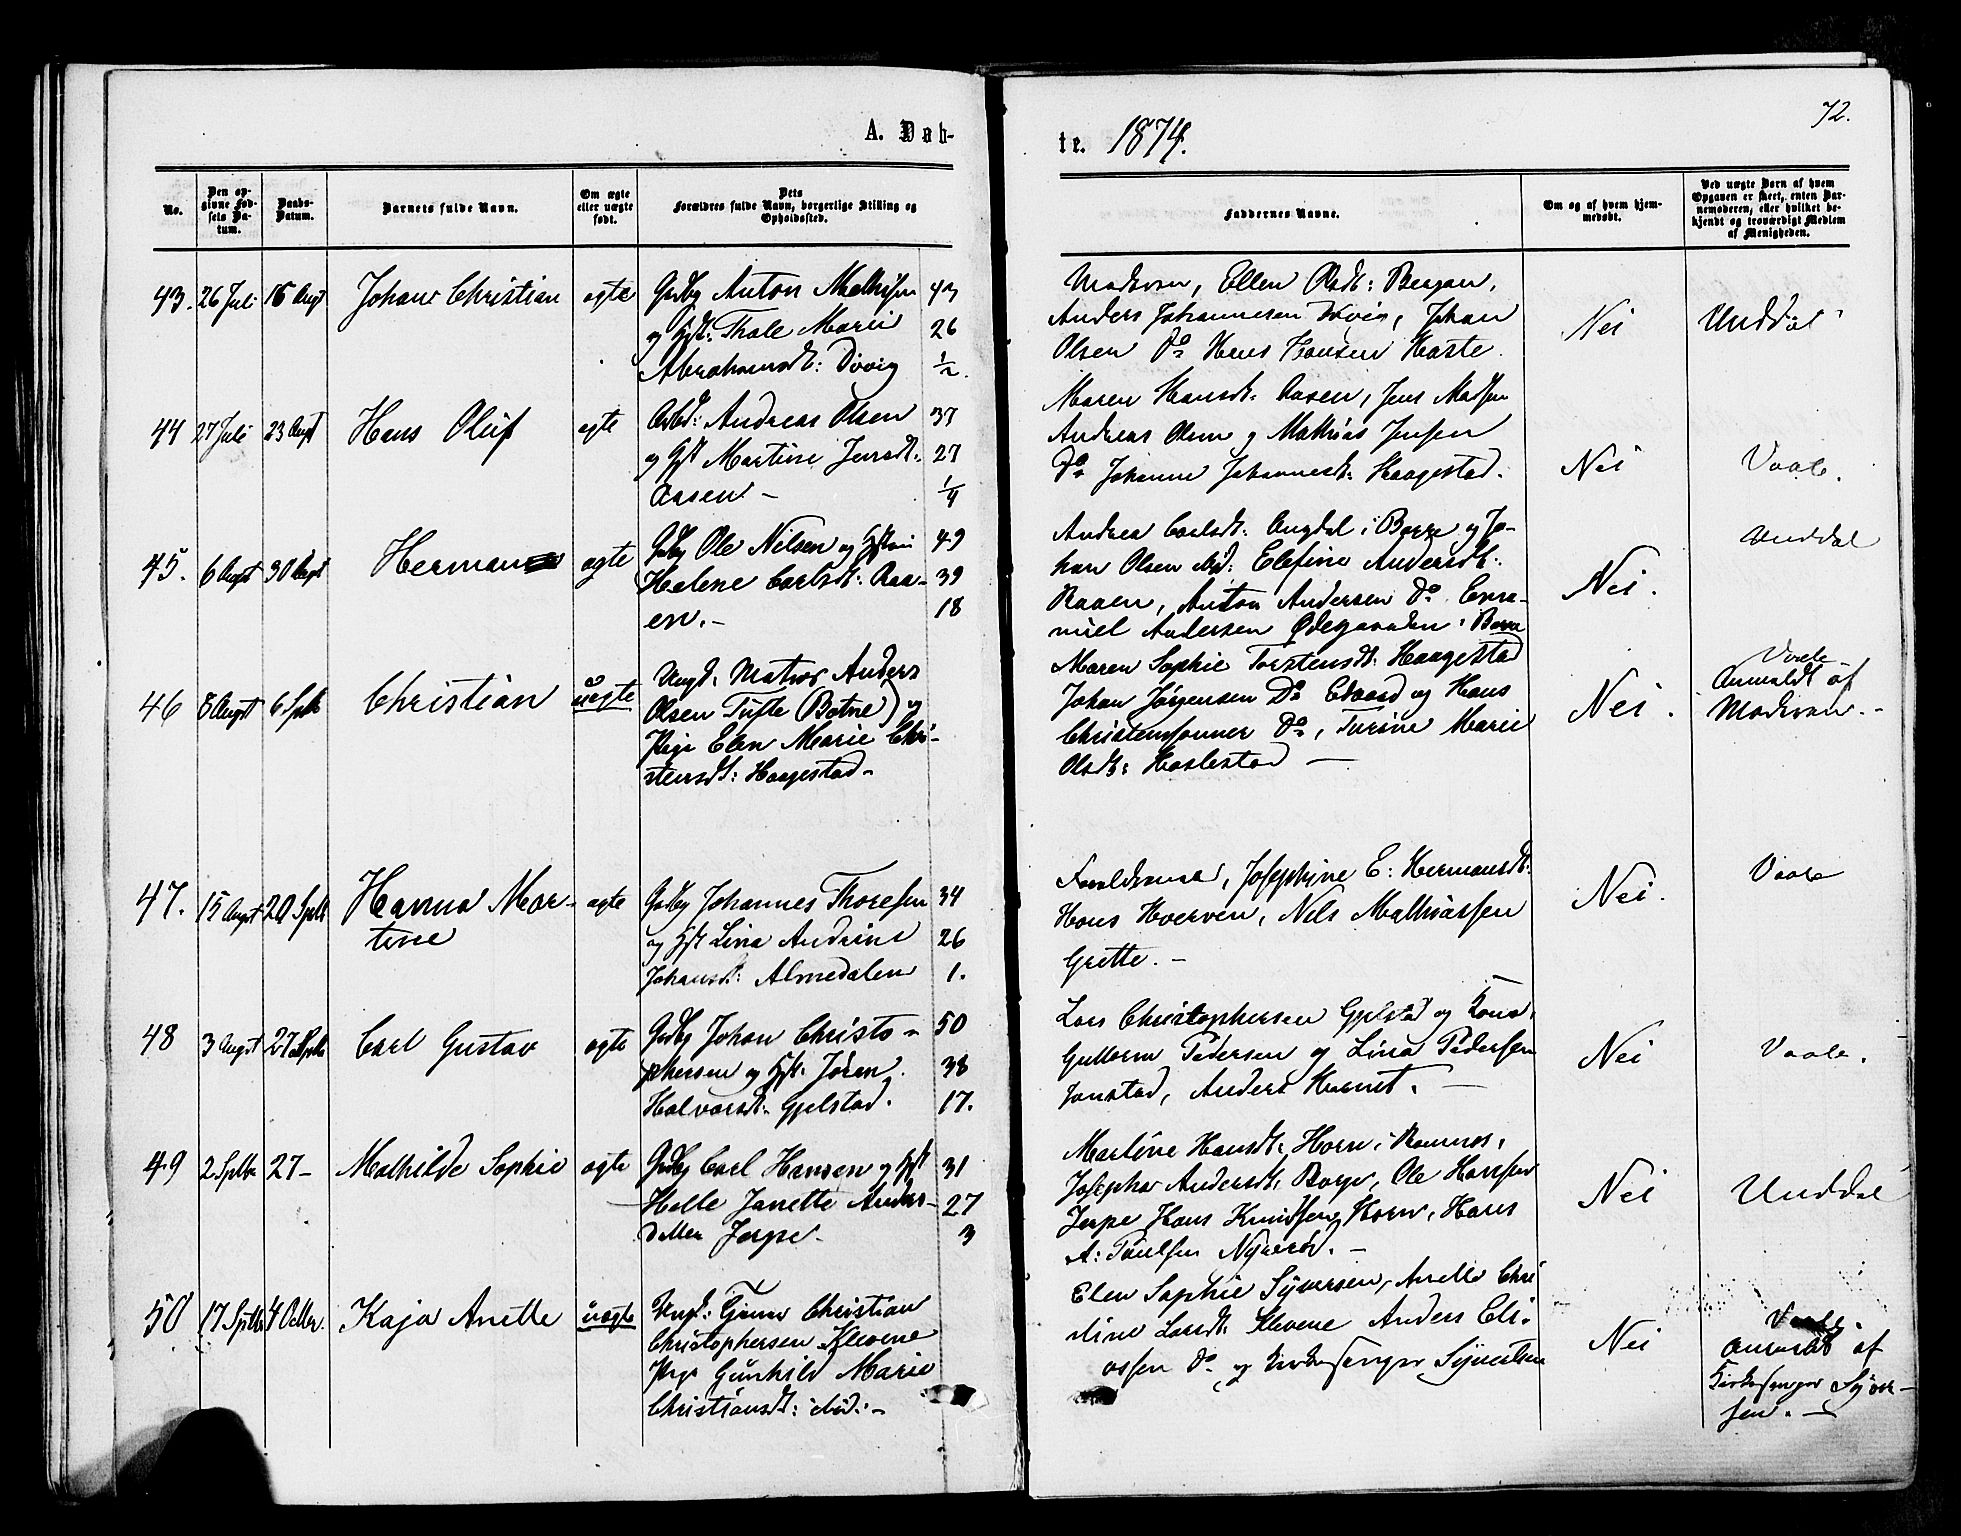 72.
A. Døb-
te. 1874.
No.
Den op-
givne Fød-
sels Da-
tum.
Daabs-
Datum.
Barnets fulde Navn.
Om ægte
eller uægte
født.
Dets
Forældres fulde Navn, borgerlige Stilling og
Opholdssted.
Faddernes Navne.
Om og af hvem hjem-
medøbt.
Ved uægte Børn af hvem
Opgaven er skeet, enten Bar-
nemoderen, eller hvilket be-
kjendt og troværdigt Medlem
af Menigheden.
43. 26 Juli 16 Augt Johan Christian ægte Gbdbr Anton Mathisen 43
og Hst: Thale Marie 26
Abrahamsdt: Dvvig 1/2.
Moderen, Ellen Olsdt: Bergan,
Anders Johannesen Dvvig, Johan
Olsen Do Hans Hansen Haste.
Nei Unddal
44 27 Juli 23 Augt Hans Oluf ægte Arbd: Andreas Olsen 37
og Hst Martine Jensdt. 27
Aasen – 1/4
Maren Hansdt: Aasen, Jens Madsen
Andreas Olsen og Mathias Jensen
Do Johanne Johannesdt: Haagestad.
Nei Vaale.
45. 6 Augt 30 Augt Herman ægte Gbdbr Ole Nilsen og Hstru 49
Helene Carlsdt: Raa- 39
en. – 18
Andrea Carlsdt: i Borre og Jo-
han Olsen ibid: Elefine Andersdt:
Raaen, Anton Andersen Do Ema-
nuel Andersen Ødegaarden i Borre
Nei. Unddal
46 8 Augt 6 Sptb Christian uægte Ungk: Matros Anders
Olsen Tufte (Botne) og
Pige Elen Marie Chri-
stensdt: Haagestad –
Maren Sophie Torstensdt: Haagestad
Johan Jørgensen Do Edvard og Hans
Christenssønner Do, Turine Marie
Olsdt: Haslestad –
Nei. Vaale
Anmeldt af
Moderen. –
47. 15 Augt 20 Sptb Hanna Mar-
tine ægte Gbdbr Johannes Thoresen 34
og Hst Lina Andrine 26
Johansdt: Almedalen 1.
Forældrene, Josephine E: Hermansdt:
Hans Hverven, Nils Mathiassen
Grette. –
Nei. Vaale
48 3 Augt 27 Sptb Carl Gustav ægte Gbdbr Johan Christo- 50
phersen og Hst: Jøren 38
Halvorsdt: Gjelstad. 17.
Lars Christophersen Gjelstad og Kone,
Gulborn Pedersen og Lina Pedersen
Jonstad, Anders –
Nei Vaale.
49 2 Sptbr 27 – Mathilde Sophie ægte Gbdbr Carl Hansen og Hst 31
Helle Janette Anders- 27
datter Jerpe – 3
Martine Hansdt: Horn i Ramnes,
Josepha Andersdt: Borge, Ole Hansen
Jerpe Hans Knudsen Horn, Hans
A: Paulsen Nykerød. –
Nei Unddal
50 17 Sptb 4 Octbr. Kaja Anette uægte Ungk: Christian
Christophersen Klevene
Pige Gunhild Marie
Christiansdt: ibid: –
Elen Sophie Syversen, Anette Chri
stine Larsdt: Klevene Anders Eli-
assen Do og Kirkesanger Syvertsen
Nei Vaale.
Anmeldt af
Kirkesanger Syver-
sen. –